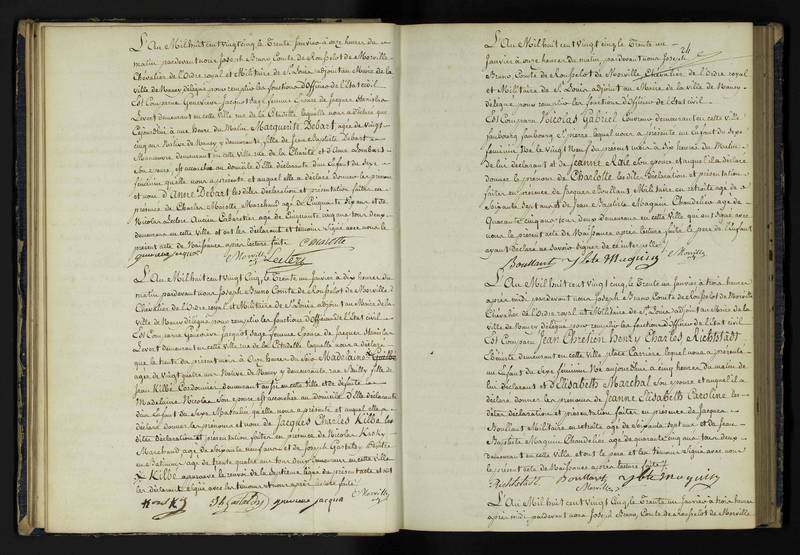 L'An Mil huit cent vingt cinq le Trente janvier à onze heures du
matin pardevant nous Joseph Bruno Comte de Rousselot de Morville
Chevalier de l'Ordre royal et Militaire de St Louis adjoint au Maire de la
Ville de Nancy délégué pour remplir les fonctions d'Officier de l'Etat civil
Est Comparue Geneviève Jacquot sage femme Epouse de Jacques Stanislas
Levert demeurant en cette Ville rue de la Citadelle laquelle nous a déclaré que
à une heure du Matin Marguerite Debart agée de vingt
cinq ans Native de Nancy y demeurant, fille de Jean Baptiste Debart
Manoeuvre demeurant en cette Ville rue de la Charité et d'Anne
Son épouse est accouchée au domicile d'Elle déclarante d'un Enfant du Sexe
féminin qu'elle nous a présenté et auquel elle a déclaré donner les prénom
et nom d'Anne Debart les dites déclaration et présentation faites en
présence de Charles Marotte Marchand agé de Cinquante Six ans et de
Nicolas Leclerc Ancien Cabaretier agé de Cinquante cinq ans tous deux
demeurans en cette Ville, et ont les déclarant et témoins signé avec nous le
présent acte de Naissance après lecture faite C Marotte
genevieve jacquot Morville Leclerc
L'An Mil huit cent Vingt Cinq, le Trente un Janvier à dix heures du
matin pardevant nous Joseph Bruno Comte de Rousselot de Morville
Chevalier de l'Ordre royal et Militaire de St Louis adjoint au Maire de la
Ville de Nancy délégué pour remplir les fonctions d'Officier de l'Etat civil
Est Comparue Geneviève Jacquot Sage femme Epouse de Jacques Stanislas
Levert demeurant en cette Ville rue de la Citadelle laquelle nous a déclaré
que le trente du présent mois à Onze heures du Soir Madelaine
agée de Vingt quatre ans Native de Nancy y demeurant rue St fille de
Jean Kilbé Cordonnier demeurant aussi en cette Ville et de défunte
Madelaine Nicolas Son épouse est accouchée au domicile d'Elle déclarante
d'un Enfant du Sexe Masculin qu'elle nous a présenté et auquel elle a
déclaré donner les prénoms et nom de Jacques Charles Kilbé les
dites déclaration et présentation faites en présence de Nicolas
Marchand agé de Soixante neuf ans et de Joseph
agé de trente quatre ans tous deux demeurans en cette Ville
Kilbé approuvé le renvoi de la Septième ligne du présent acte et ont
les déclarant signé avec les témoins et nous après lecture faite
genevieve jacquot Morville
24
L'An Mil huit cent vingt cinq le Trente un
Janvier à onze heures du matin pardevant nous Joseph
Bruno, Comte de Rousselot de Morville, Chevalier de l'Ordre royal
et Militaire de St Louis adjoint au Maire de la Ville de Nancy
délégué pour remplir les fonctions d'Officier de l'Etat civil
Est Comparu Nicolas Gabriel Couvreur demeurant en cette Ville
faubourg St Pierre lequel nous a présenté un Enfant du Sexe
féminin Né le vingt neuf du présent mois à dix heures du Matin
De lui déclarant et de Jeanne Son épouse et auquel il a déclaré
donner le prénom de Charlotte les dites Déclaration et présentation
faites en présence de Jacques Boullant Militaire en retraite agé de
Soixante Sept ans et de Jean Baptiste Maquin Chandelier agé de
Quarante cinq ans tous deux demeurans en cette Ville qui ont signé avec
nous le présent acte de Naissance après lecture faite le père de l'Enfant
ayant déclaré ne savoir signer de ce interpellé
Boullant J Bte Maquin Morville
L'An Mil huit cent vingt cinq, le Trente un janvier à trois heures
après midi pardevant nous Joseph Bruno Comte de Rousselot de Morville
Chevalier de l'Ordre royal et Militaire de St Louis adjoint au Maire de la
Ville de Nancy délégué pour remplir les fonctions d'Officier de l'Etat civil
Est Comparu Jean Chrétien Henry Charles Richstädt
demeurant en cette Ville place Carrière lequel nous a présenté
un Enfant du Sexe féminin Né aujourd'hui à cinq heures du matin de
lui déclarant et d'Elisabeth Marchal Son épouse et auquel il a
déclaré donner les prénoms de Jeanne Elisabeth Caroline les
dites déclaration et présentation faites en présence de Jacques
Boullant Militaire en retraite agé de Soixante Sept ans et de Jean
Baptiste Maquin Chandelier agé de quarante cinq ans tous deux
demeurans en cette Ville et ont le père et les témoins signé avec nous
le présent acte de Naissance après lecture faite
Richstädt Boullant J Bte Maquin
Morville
L'An Mil huit cent Vingt Cinq, le Trente un janvier à trois heures
après midi pardevant nous Joseph Bruno, Comte de Rousselot de Morville